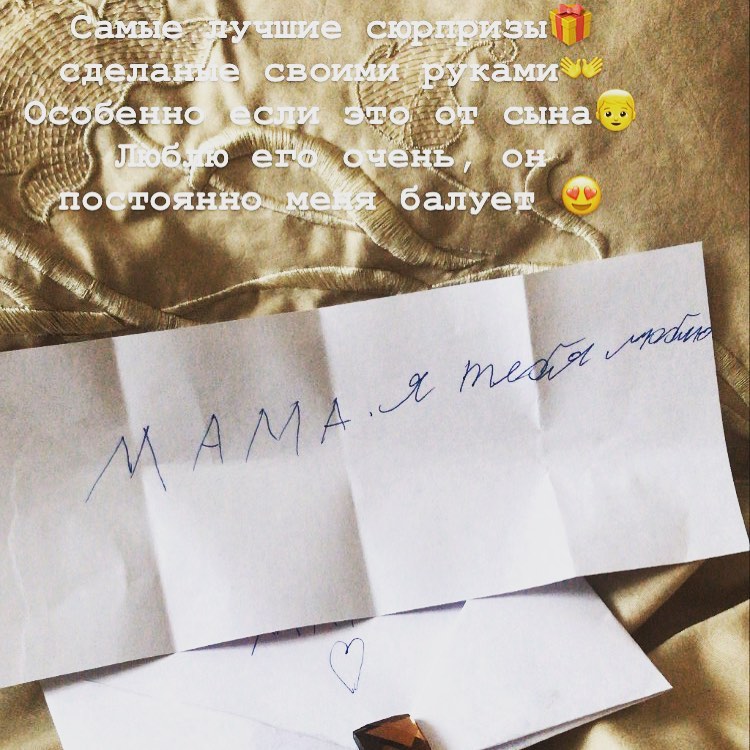 Самые лучшие сюрпризы🎁
сделаные своими руками👐
Особенно если это от сына👦
Люблю его очень, он
постоянно меня балует 😍
МАМА. я тебя люблю